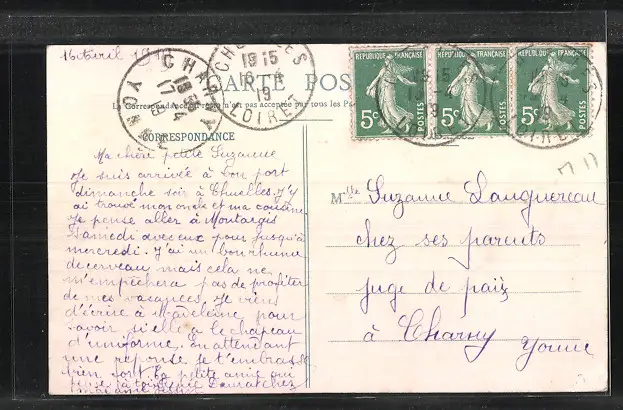 16 Avril 19
CHARNY
YONNE
18
17 -4
19
CHUELLES
19 15
16 -4
19
LOIRET
REPUBLIQUE FRANÇAISE
5c
POSTES
REPUBLIQUE FRANÇAISE
5c
POSTES
REPUBLIQUE FRANÇAISE
5c
POSTES
CARTE POS
La Correspondance au recto n'est pas acceptée par tous les Pa
CORRESPONDANCE
Ma chère petite Suzanne
Je suis arrivée à bon port
dimanche soir à Chuelles. J'y
ai trouvé mon oncle et ma cousine
Je pense aller à Montargis
Samedi avec eux pour jusqu'à
mercredi. J'ai un bon rhume
de cerveau mais cela ne
m'empêchera pas de profiter
de mes vacances. Je viens
d'écrire à Madeleine pour
savoir si elle a le chapeau
d'uniforme. En attendant
une réponse je t'embrasse
bien fort. Ta petite amie qui
Mlle Suzanne Languereau
chez ses parents
juge de paix
à Charny
Yonne